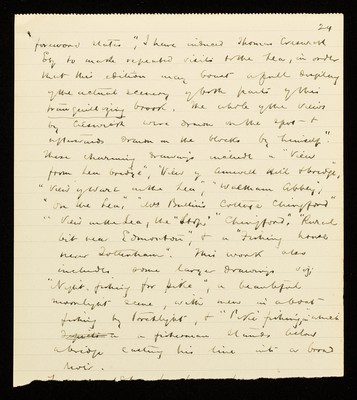 24
foreword states ", I have induced Thomas Creswick
Esq to make repeated visits to the Lea, in order
that this edition may boast a full display
of the actual scenery of both parts of this
tranquillizing book. The whole of the views
by Creswick were drawn on the spot &
afterwards drawn on the blocks by himself".
These charming drawings include a "View
from Lea bridge", "View of Amwell Hill & bridge,"
"View of Ware on the Lea," "Waltham Abbey,"
"On the Lea," "Mrs College Chingford"
"View on the Lea, the "
"Chingford," "Rural
bit near Edmonton", & a "fishing house
near Tottenham". This work also
includes some larger drawings viz
"Night-fishing for ", a beautiful
moonlight scene, with men in a boat
fishing by torchlight, & " fishing" where
a fisherman stands below
a bridge casting his line into a broad